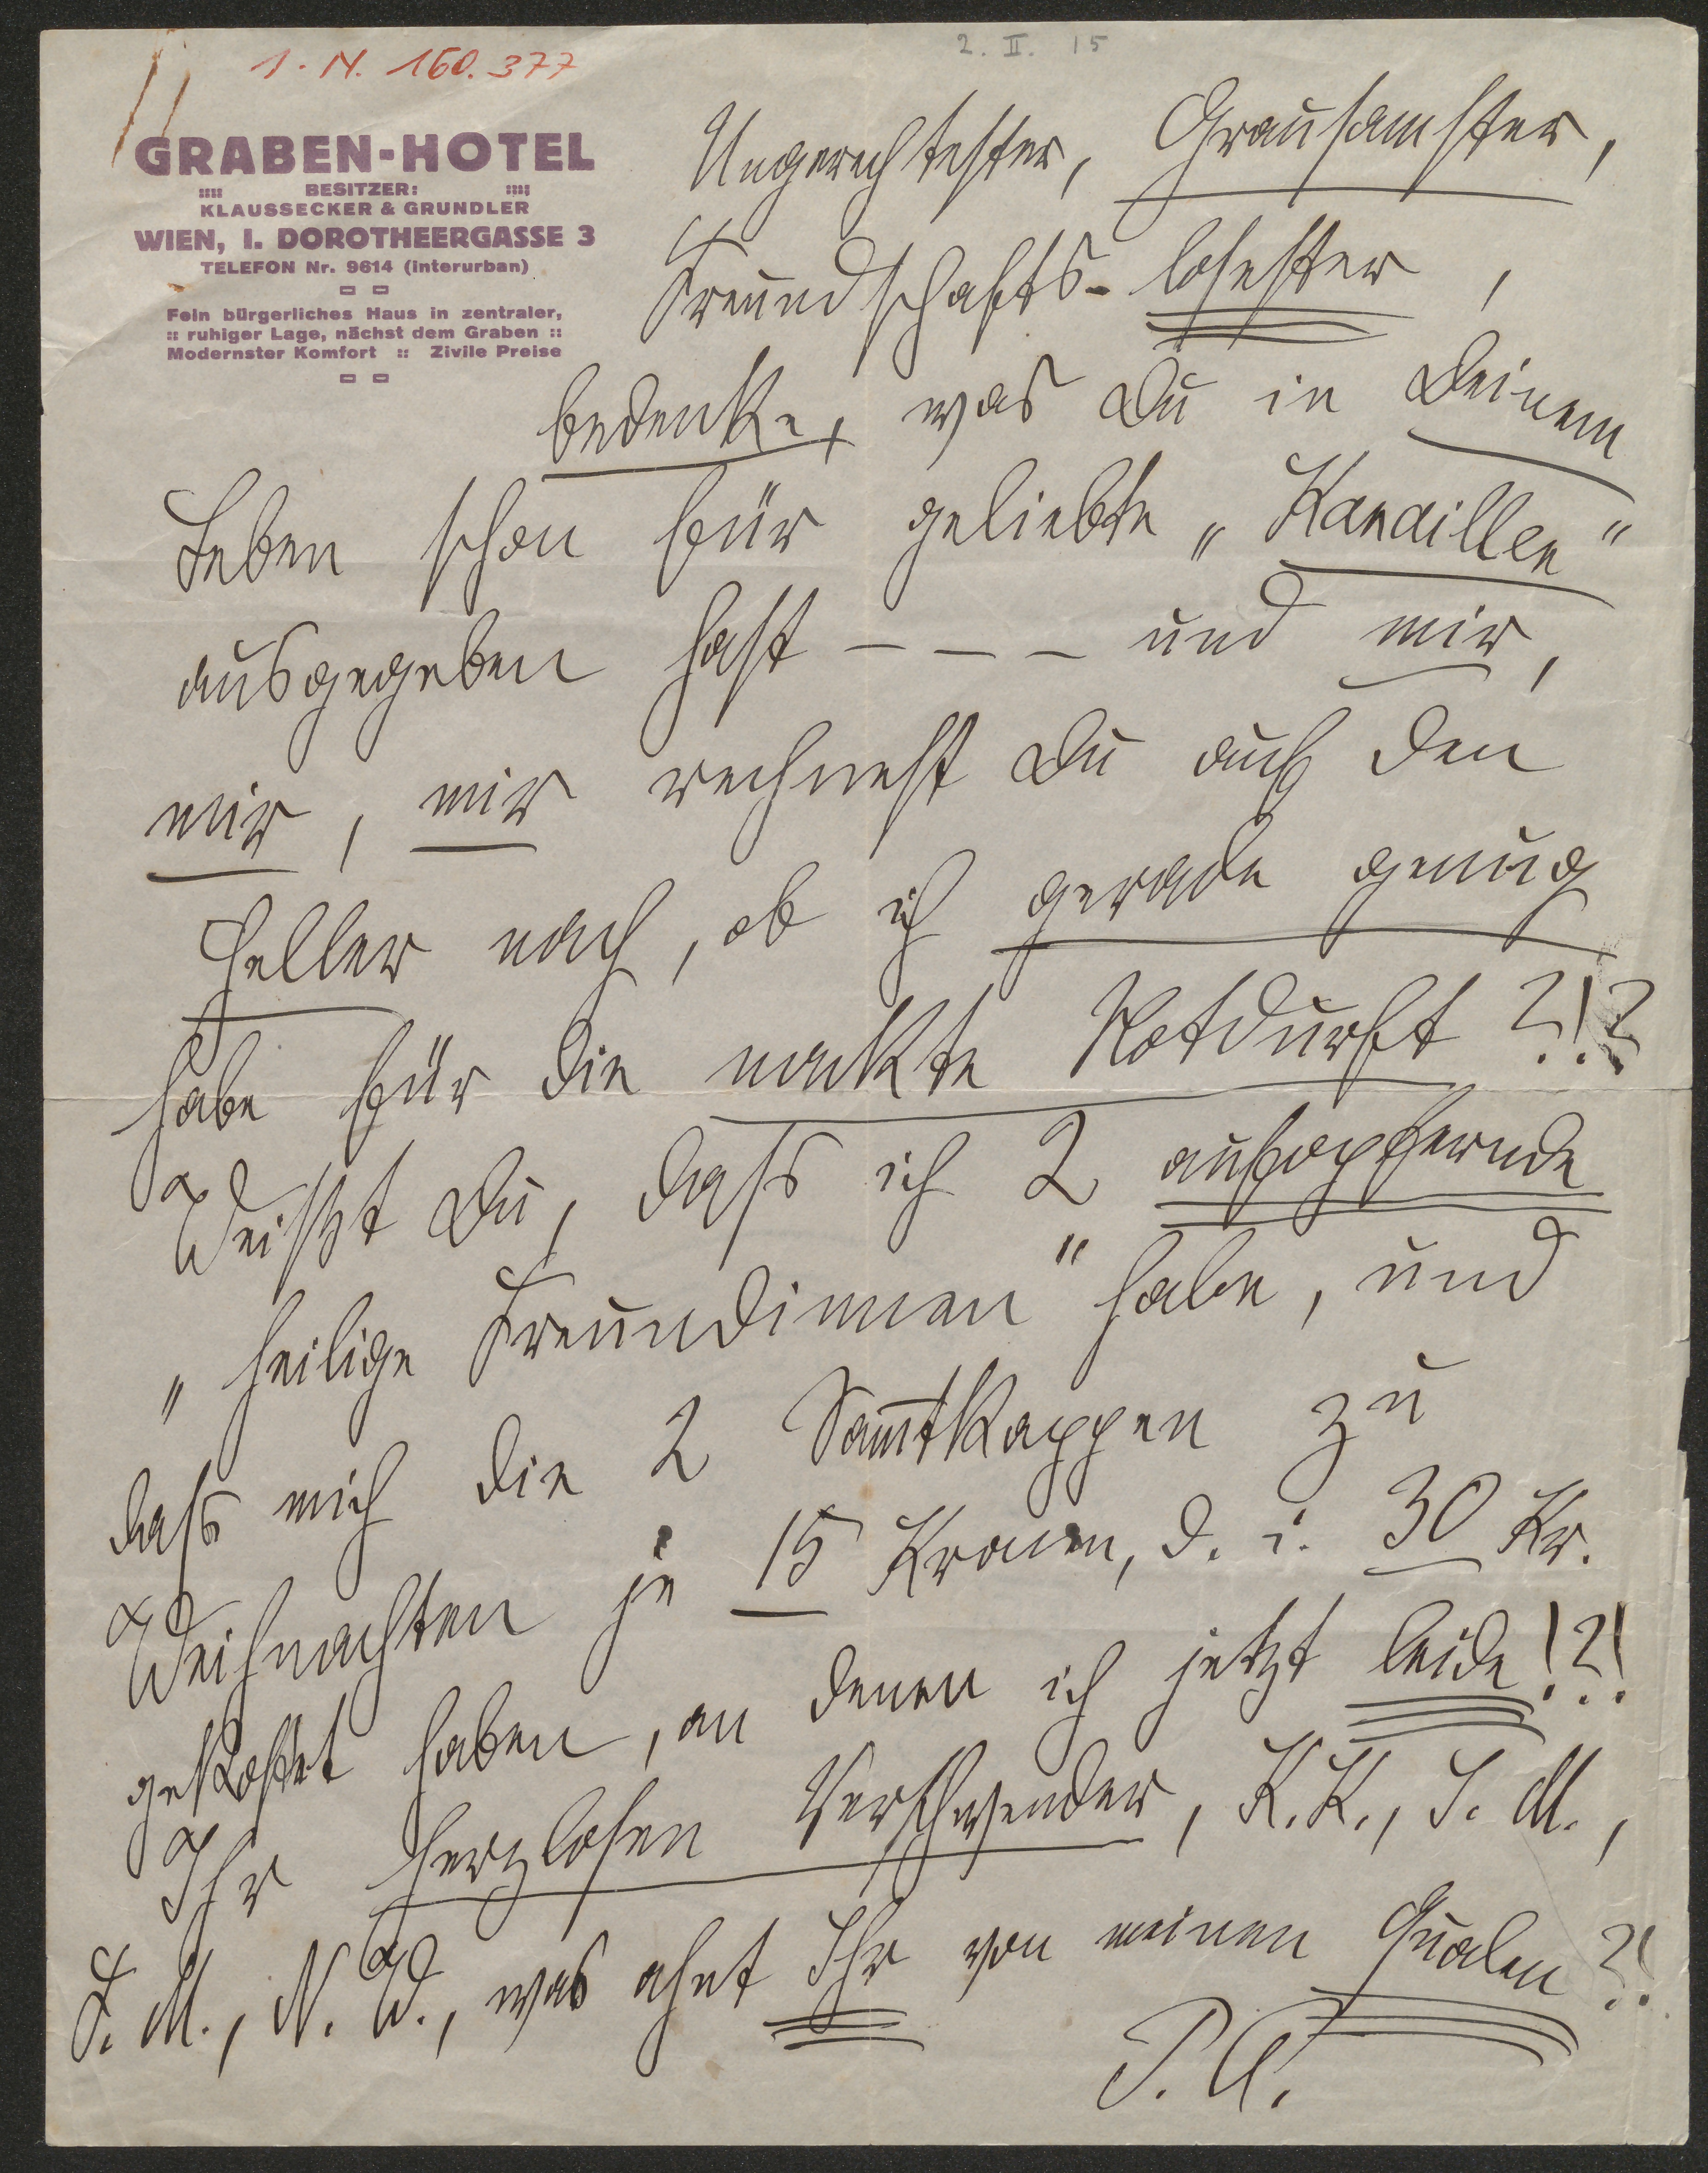 1. N. 160.377
2. II. 15
GRABEN-HOTEL
BESITZER:
KLAUSSECKER & GRUNDLER
WIEN, I. DOROTHEERGASSE 3
TELEFON Nr. 9614 (interurban)
Fein bürgerliches Haus in zentraler,
:: ruhiger Lage, nächst dem Graben ::
Modernster Komfort :: Zivile Preise
Ungerechtester, Grausamster,
Freundschafts-losester,
bedenke, was Du in Deinem
Leben schon für geliebte „Kanaillen“
ausgegeben hast - - - und mir,
mir, mir rechnest Du auch den
Heller nach, ob ich gerade genug
habe für die nackte Notdurft?!?
Weißt Du, dass ich 2 aufopfernde
„heilige Freundinnen“ habe, und
dass mich die 2 Samtkappen zu
Weihnachten je 15 Kronen, d. i. 30 Kr.
gekostet haben, an denen ich jetzt leide!?!
Ihr herzlosen Verschwender, K. K., S. M.,
F. M., N. W., was ahnt Ihr von meinen Qualen?!
P. A.